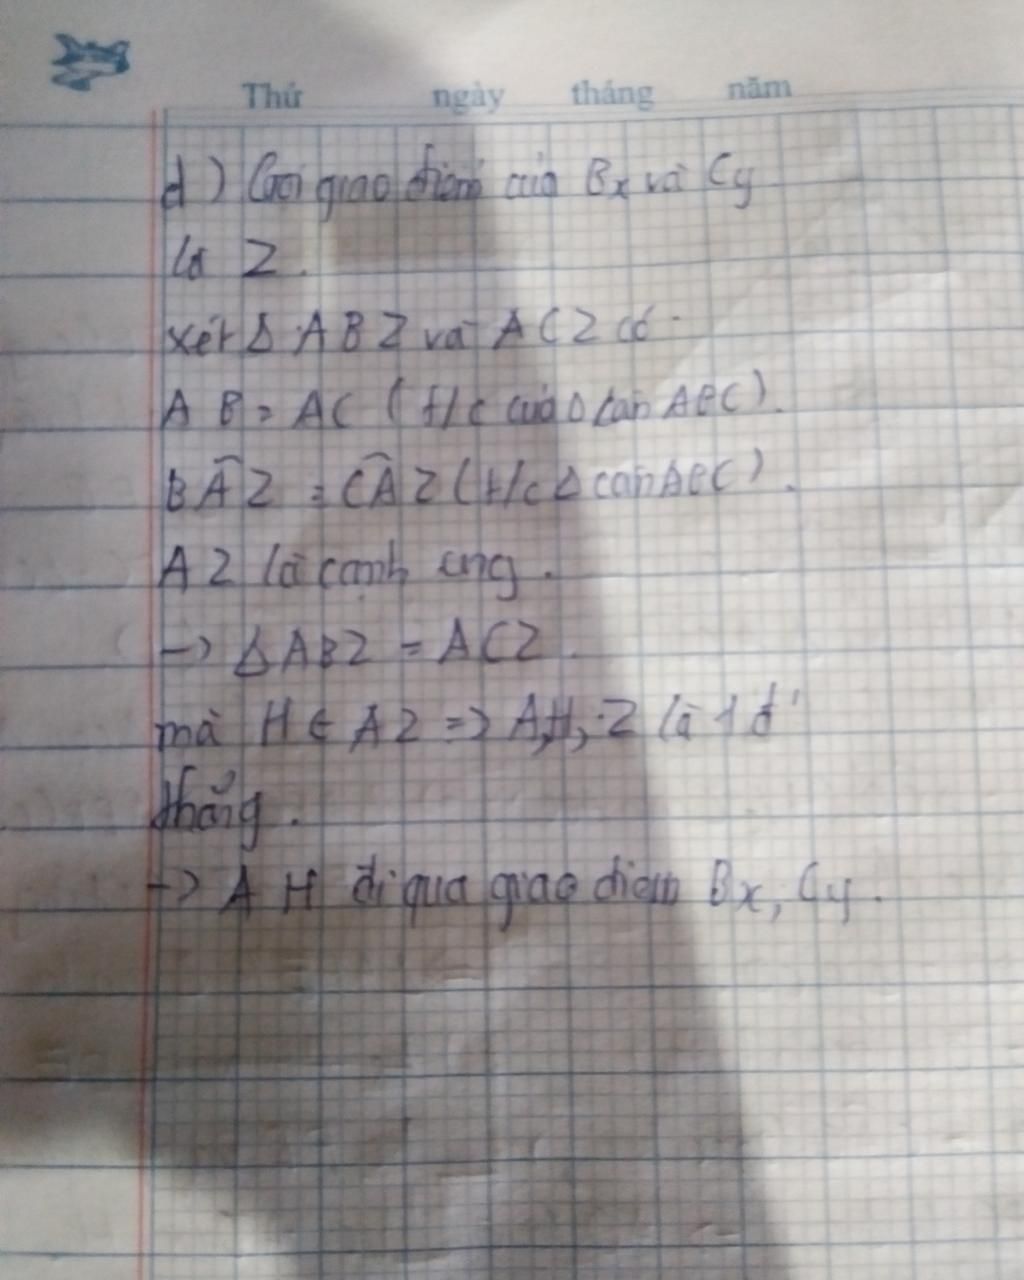 Thứ ngày tháng năm
d) Gọi giao điểm của Bx và Cy
là Z.
xét Δ ABZ và ACZ có
AB = AC (t/c của Δ cân ABC).
BÂZ = CÂZ (t/c Δ cân ABC).
AZ là cạnh cung.
-> Δ ABZ = ACZ.
mà H ∈ AZ => A, H, Z là 1 đ'
thẳng.
-> AH đi qua giao điểm Bx, Cy.